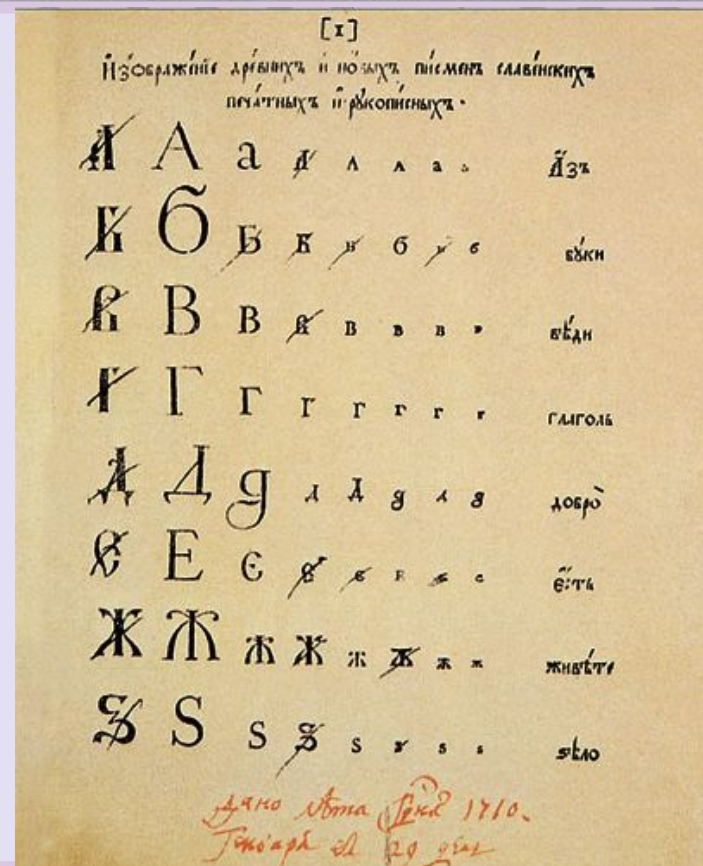 [1]
И҆зѡбраже́нїе дре́внихъ и҆ но́выхъ пи́сменъ славе́нскихъ
печа́тныхъ и҆ рꙋкопи́сныхъ.
А А а А л л а а А҆́зъ
Б б Б Б б б б б бꙋ́ки
В В В В В в в в вѣ́ди
Г Г г г г г г г глаго́ль
Д Д д л Д д л д добро̀
Є Е є є є е є є є҆́сть
Ж Ж ж ж ж ж ж ж живѣ́те
Ѕ Ѕ ѕ ѕ ѕ ѕ ѕ ѕ ѕѣло̀
1710.
29